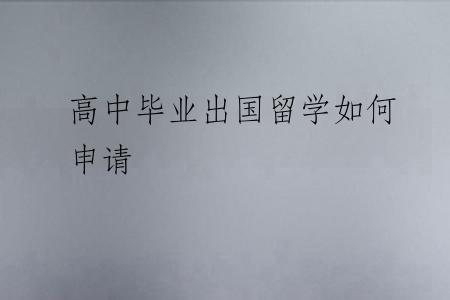 高中毕业出国留学如何
申请